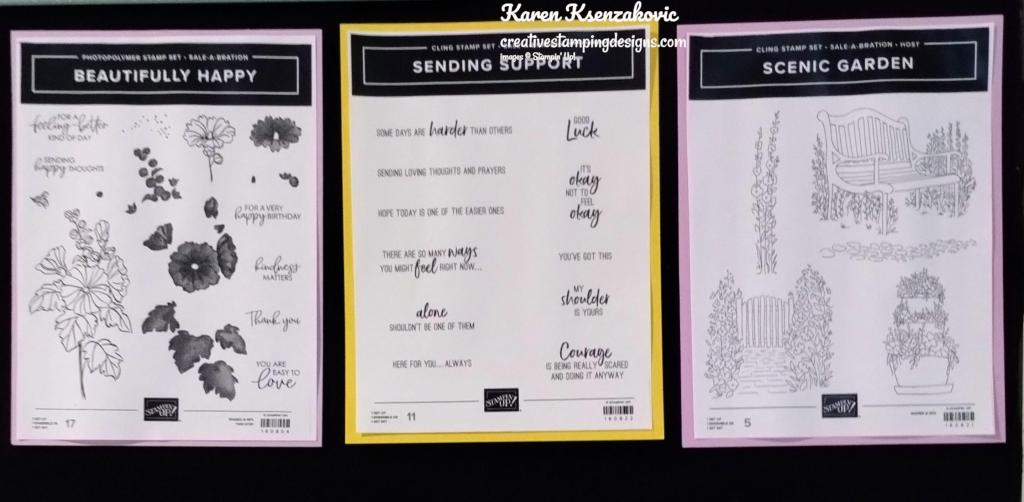 Karen Ksenzakovic
creativestampingdesigns.com
Images © Stampin' Up!
PHOTOPOLYMER STAMP SET • SALE-A-BRATION
BEAUTIFULLY HAPPY
FOR A
feeling-better
KIND OF DAY
SENDING
happy THOUGHTS
FOR A VERY
happy BIRTHDAY
kindness
MATTERS
Thank you
YOU ARE
EASY TO
love
STAMPIN' UP!
17
160804
CLING STAMP SET
SENDING SUPPORT
SOME DAYS ARE harder THAN OTHERS
SENDING LOVING THOUGHTS AND PRAYERS
HOPE TODAY IS ONE OF THE EASIER ONES
THERE ARE SO MANY ways
YOU MIGHT feel RIGHT NOW...
alone
SHOULDN'T BE ONE OF THEM
HERE FOR YOU... ALWAYS
GOOD
Luck
IT'S
okay
NOT TO
FEEL
okay
YOU'VE GOT THIS
MY
shoulder
IS YOURS
Courage
IS BEING REALLY SCARED
AND DOING IT ANYWAY
STAMPIN' UP!
11
CLING STAMP SET • SALE-A-BRATION • HOST
SCENIC GARDEN
STAMPIN' UP!
5